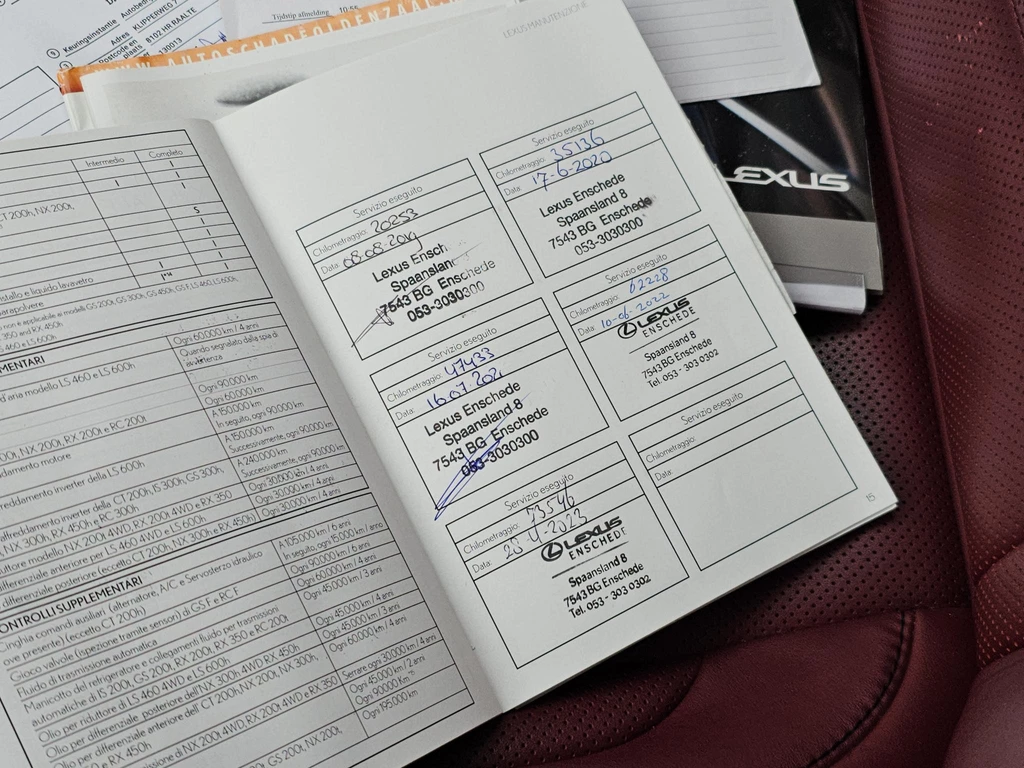 Keuringsinstantie
Adres KLIPPERWEG
Postcode en
plaats 8102 HR RAALTE
130013
Tijdstip afmelding
WWW.AUTOSCHADEOLDENZAAL.
LEXUS MANUTENZIONE
LEXUS
Servizio eseguito
Chilometraggio: 20253
Data: 08.08.2019
Lexus Ensch
Spaansland
7543 BG Enschede
053-3030300
Servizio eseguito
Chilometraggio: 35136
Data: 17-6-2020
Lexus Enschede
Spaansland 8
7543 BG Enschede
053-3030300
Servizio eseguito
Chilometraggio: 47433
Data: 16.07.2021
Lexus Enschede
Spaansland 8
7543 BG Enschede
053-3030300
Servizio eseguito
Chilometraggio: 62228
Data: 10-06-2022
LEXUS
ENSCHEDE
Spaansland 8
7543 BG Enschede
Tel. 053 - 303 0302
Servizio eseguito
Chilometraggio: 73546
Data: 20-4-2023
LEXUS
ENSCHEDE
Spaansland 8
7543 BG Enschede
Tel. 053 - 303 0302
Servizio eseguito
Chilometraggio:
Data:
15
Intermedio Completo
CT 200h, NX 200t,
S
stallo e liquido lavavetro
parapolvere
o non è applicabile ai modelli GS 200t, GS 300h, GS 450h, GS F, LS 460, LS 600h,
350 and RX 450h
LS 460 e LS 600h
MENTARI
Ogni 60.000 km / 4 anni
d'aria modello LS 460 e LS 600h
Quando segnalato dalla spia di
avvertenza
Ogni 90.000 km
Ogni 60.000 km
200t, NX 200t, RX 200t e RC 200t
A 150.000 km
In seguito, ogni 90.000 km
reddamento motore
A 150.000 km
Successivamente, ogni 90.000 km
freddamento inverter della LS 600h
A 240.000 km
Successivamente, ogni 90.000 km
affreddamento inverter della CT 200h, IS 300h, GS 300h,
NX 300h, RX 450h e RC 300h
Ogni 30.000 km / 4 anni
duttore modello NX 200t 4WD, RX 200t 4WD e RX 350
Ogni 30.000 km / 4 anni
differenziale anteriore per LS 460 4WD e LS 600h
Ogni 30.000 km / 4 anni
differenziale posteriore (eccetto CT 200h, NX 300h e RX 450h)
CONTROLLI SUPPLEMENTARI
Cinghia comandi ausiliari (alternatore, A/C e Servosterzo idraulico
ove presente) (eccetto CT 200h)
A 105.000 km / 6 anni
In seguito, ogni 15.000 km / anno
Gioco valvole (ispezione tramite sensori) di GS F e RC F
Ogni 90.000 km / 6 anni
Fluido di trasmissione automatica
Ogni 60.000 km / 4 anni
Manicotto del refrigeratore e collegamenti fluido per trasmissioni
automatiche di IS 200t, GS 200t, RX 200t, RX 350 e RC 200t
Ogni 45.000 km / 3 anni
Olio per riduttore di LS 460 4WD e LS 600h
Ogni 45.000 km / 4 anni
Olio per differenziale posteriore dell'NX 300h 4WD RX 450h
Ogni 45.000 km / 3 anni
Olio per differenziale anteriore dell' CT 200h, NX 200t, NX 300h,
e RX 450h
Ogni 60.000 km / 4 anni
Serrare ogni 30.000 km / 4 anni
missione di NX 200t 4WD, RX 200t 4WD e RX 350
Ogni 45.000 km / 2 anni
Ogni 90.000 Km
GS 200t, NX 200t,
Ogni 195.000 km